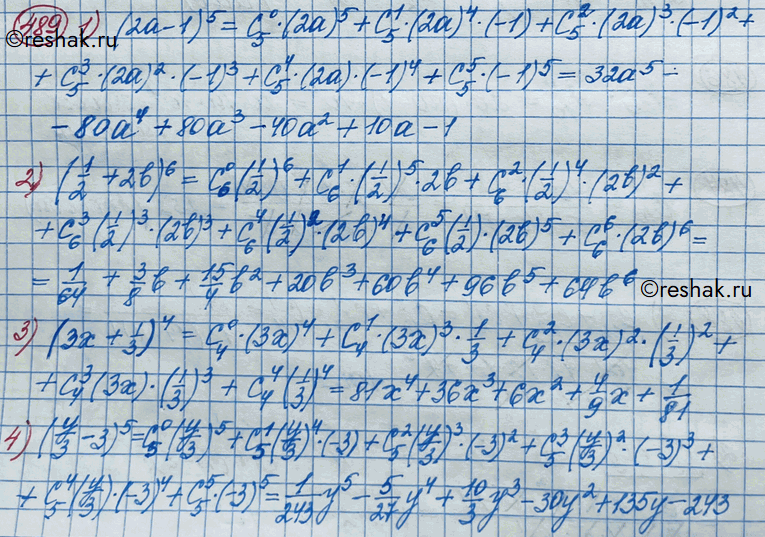 489 1) (2a-1)^5 = C_5^0·(2a)^5 + C_5^1·(2a)^4·(-1) + C_5^2·(2a)^3·(-1)^2 +
©reshak.ru
+ C_5^3·(2a)^2·(-1)^3 + C_5^4·(2a)·(-1)^4 + C_5^5·(-1)^5 = 32a^5 -
- 80a^4 + 80a^3 - 40a^2 + 10a - 1
2) (1/2 + 2b)^6 = C_6^0 (1/2)^6 + C_6^1·(1/2)^5·2b + C_6^2·(1/2)^4·(2b)^2 +
+ C_6^3 (1/2)^3·(2b)^3 + C_6^4 (1/2)^2·(2b)^4 + C_6^5 (1/2)·(2b)^5 + C_6^6·(2b)^6 =
= 1/64 + 3/8 b + 15/4 b^2 + 20b^3 + 60b^4 + 96b^5 + 64b^6
©reshak.ru
3) (3x + 1/3)^4 = C_4^0·(3x)^4 + C_4^1·(3x)^3·1/3 + C_4^2·(3x)^2·(1/3)^2 +
+ C_4^3 (3x)·(1/3)^3 + C_4^4 (1/3)^4 = 81x^4 + 36x^3 + 6x^2 + 4/9 x + 1/81
4) (y/3 - 3)^5 = C_5^0 (y/3)^5 + C_5^1 (y/3)^4·(-3) + C_5^2 (y/3)^3·(-3)^2 + C_5^3 (y/3)^2·(-3)^3 +
+ C_5^4 (y/3)·(-3)^4 + C_5^5·(-3)^5 = 1/243 y^5 - 5/27 y^4 + 10/3 y^3 - 30y^2 + 135y - 243